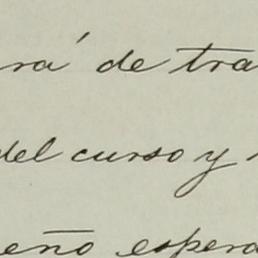 rá de tra
del curso y
eño espera